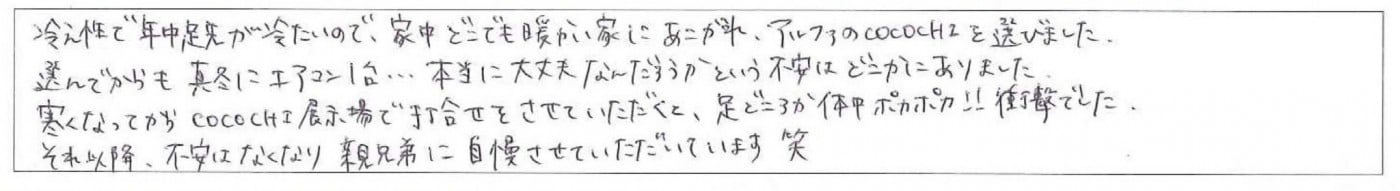 冷え性で年中足先が冷たいので、家中どこでも暖かい家にあこがれ、アルファのCOCOCHIを選びました.
選んでからも真冬にエアコン1台…本当に大丈夫なんだろうかという不安はどこかにありました.
寒くなってからCOCOCHI展示場で打合せをさせていただくと、足どころか体中ポカポカ!!衝撃でした.
それ以降、不安はなくなり親兄弟に自慢させていただいています 笑